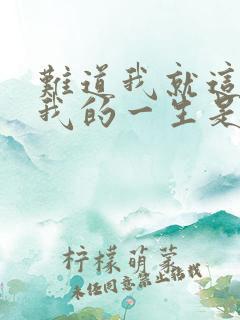 難道我就這
我的一生是
柠檬萌茶
未经同意禁止转载